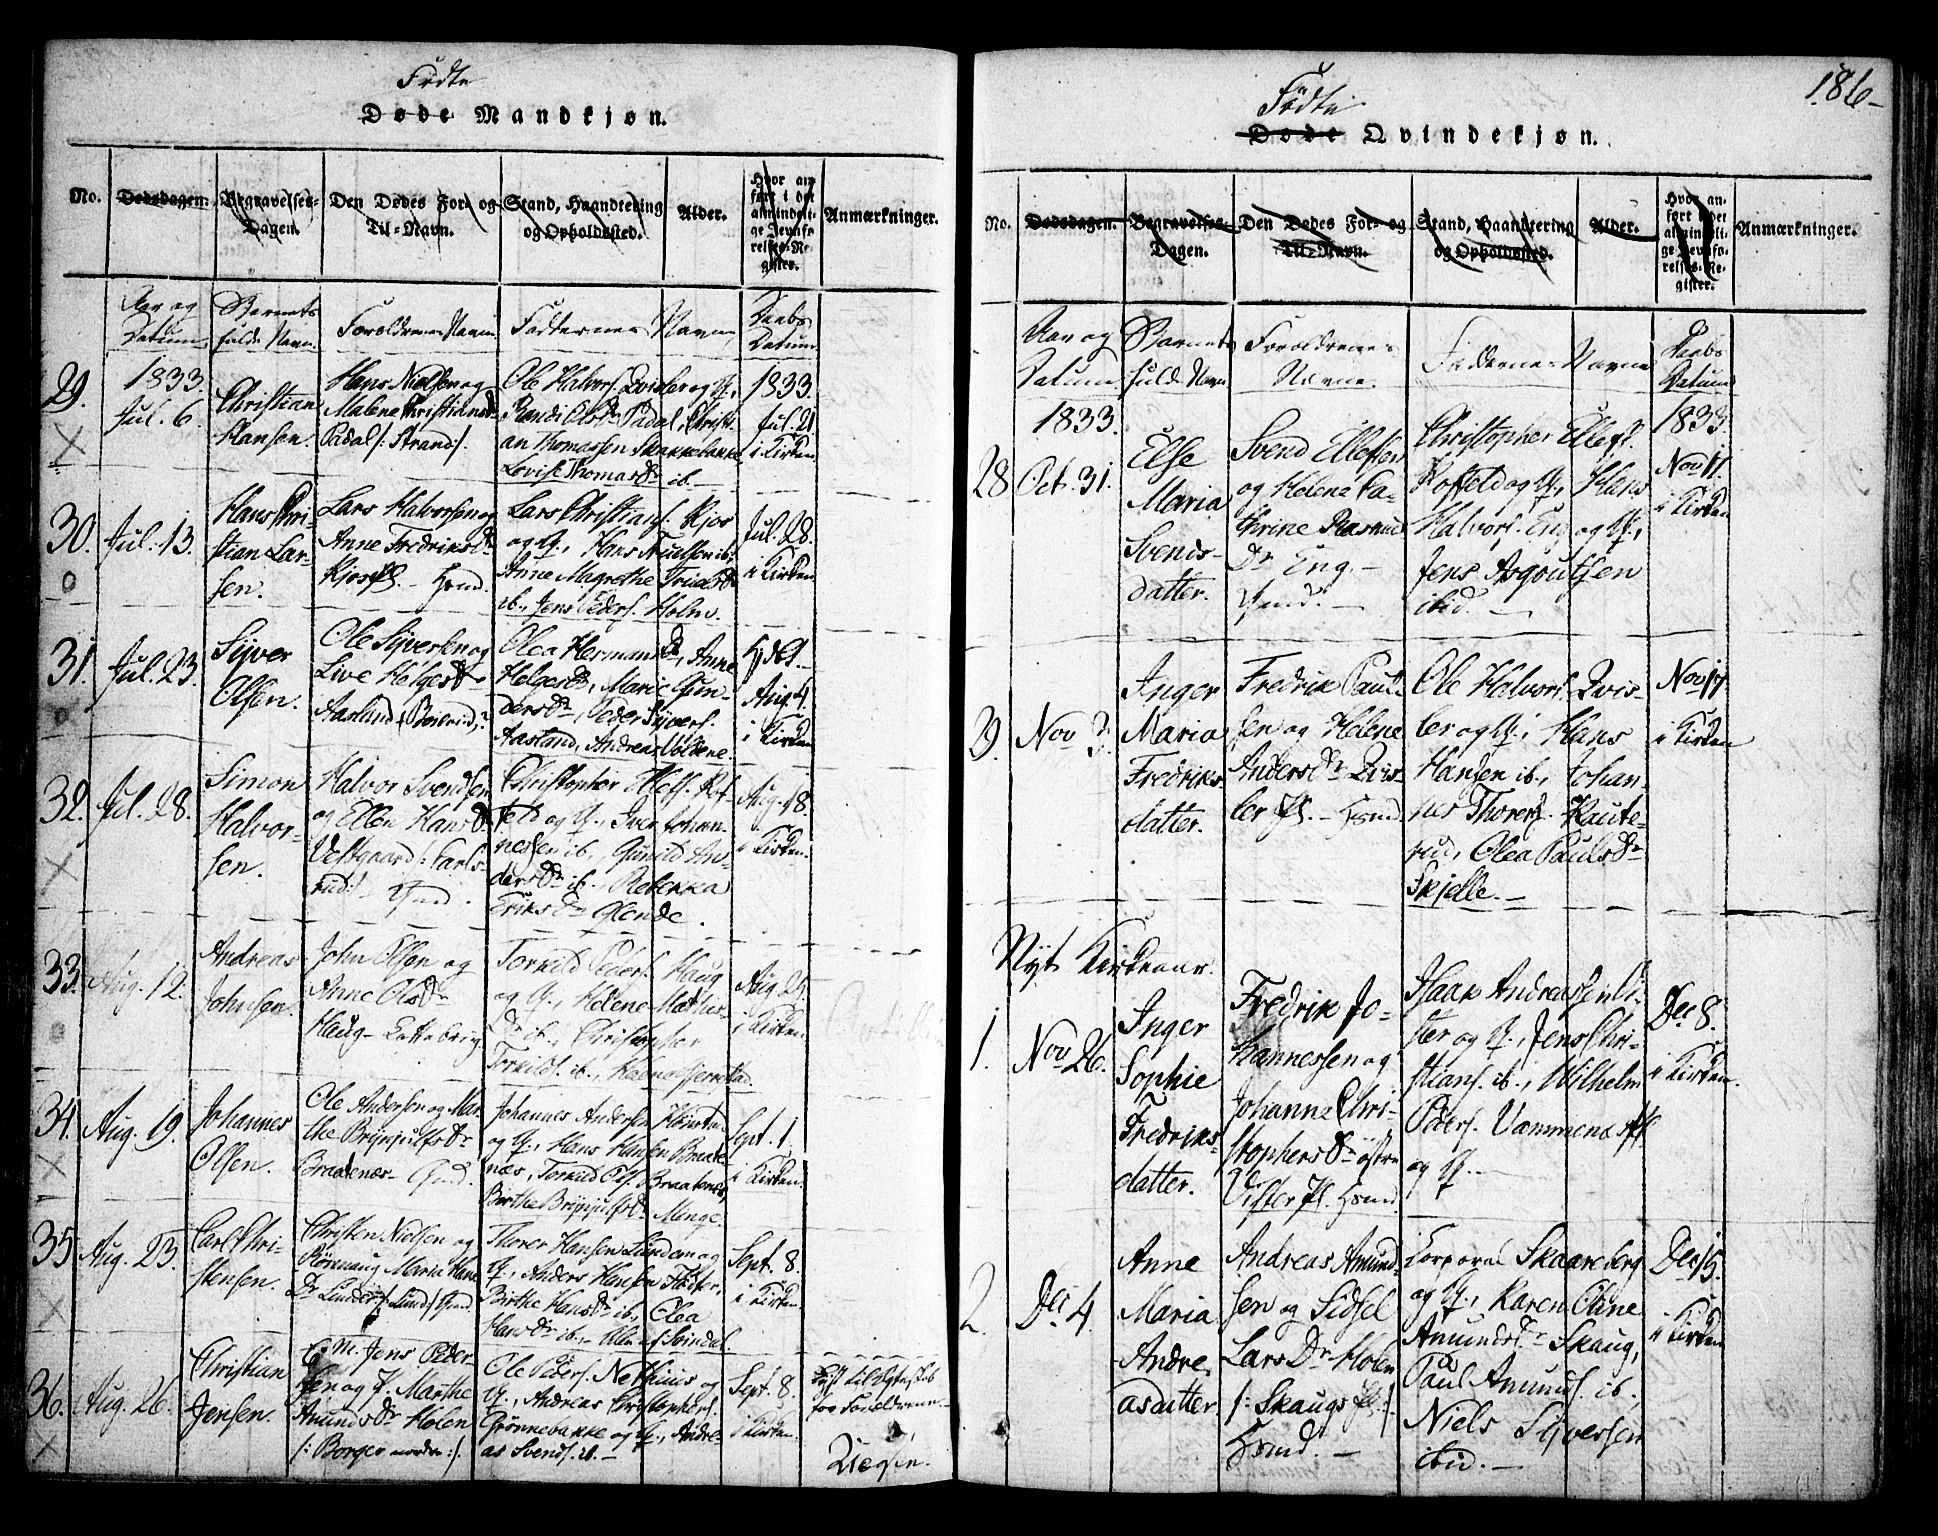 Fødte
Døde Mandkjøn.
No.
Dødsdagen.
Begravelses-
Dagen.
Den Dødes For- og
Til-Navn.
Stand, Haandtering
og Opholdssted.
Alder.
Hvor an-
ført i det
almindeli-
ge Jevnfø-
relses-Re-
gister.
Anmærkninger.
Aar og
Datum
Barnets
fulde Navn.
Forældrenes Navn
Fadernes Navne
Daabs
Datum
29.
1833.
Jul. 6.
Christian
Hansen.
Hans Nielsen og
Malene Christiansd
Padal /: Strand :/.
Ole Halvors. Qvisler og Q.,
Randi Olsdr Padal, Christi-
an Thomassen Skakkebakke,
Lovise Thomasdr ib. —
1833
Jul. 21
i Kirken
X
30.
Jul. 13.
Hans Chri-
stian Lar-
sen.
Lars Halvorsen og
Anne Fredriksdr
Kjos Pl. — Hsmd.
Lars Christians. Kjos
og Q., Hans Truelsen ib.
Anne Magrethe Truelsdr
ib., Jens Peders. Holm.
Jul. 28.
i Kirken
o
31.
Jul. 23.
Syver
Olsen.
Ole Syversen og
Live Helgesdr
Aasland
Olea Hermansdr, Anne
Helgesdr, Marie Gun-
dersdr, Peder Syvers.
Aasland, Andreas
Aug. 4.
i Kirken
o
32.
Jul. 28.
Simon
Halvor-
sen.
Halvor Svendsen
og Ellen Hansdr
Vestgaard /: Karls-
rud :/ Gmd.
Christopher Ellefs. Rof-
feld og Q., Iver Johan-
nessen ib., Gunild An-
dersdr ib., Rebekka
Eriksdr Glende.
Aug. 18.
i Kirken.
X
33.
Aug. 12.
Andreas
Johnsen.
John Olsen og
Anne Olsdr
Haug
Torkild Peders. Haug
og Q., Helene Mathis-
dr ib., Christopher
Torkilds. ib.,
Aug. 25.
i Kirken
34.
Aug. 19.
Johannes
Olsen.
Ole Andersen og Mar-
the Brynjulfsdr
Braatenæs — Gmd.
Johannes Andersen
og Q., Hans Hansen Braate-
næs, Torkild Ols. Braatenæs,
Birthe Brynjulfsdr Menge.
Sept. 1.
i Kirken.
X
35
Aug. 23.
Carl Chri-
stensen.
Christen Nielsen og
Rønnaug Maria Hans
dr Lunder /: Lund :/ Gmd.
Thorer Hansen Lundem og
Q., Anders Hansen
Birthe Hansdr ib., Olea
Hansdr ib., — Svindal.
Sept. 8.
i Kirken.
X
36.
Aug. 26.
Christian
Jensen.
Jens Peder-
sen og P. Marthe
Amundsdr Holen
/: Borger :/.
Ole Peders. Nethuus og
Q., Andreas Christophers.
Grønnebakke og Q., Andre-
as Svends. ib. —
Sept. 8.
i Kirken.
for Forældrene.
Uægte.
X
186
Fødte
Døde Qvindekjøn.
No.
Dødsdagen.
Begravelses-
Dagen.
Den Dødes For- og
Til-Navn.
Stand, Haandtering
og Opholdssted.
Alder.
Hvor an-
ført i det
almindeli-
ge Jevnfø-
relses-Re-
gister.
Anmærkninger.
Aar og
Datum
Barnets
fulde Navn
Forældrenes
Navne.
Faddernes Navne
Daabs
Datum
28
1833.
Oct. 31.
Else
Maria
Svends-
datter.
Svend Ellefsen
og Helene Ca-
thrine Rasmus
dr Eng. —
Gmd. —
Christopher Ellefs.
Roffeld og Q., Hans
Halvors. Eng og Q.,
Jens Asgoutsen
ibid. —
1833
Nov 17.
i Kirken
29.
Nov 3.
Inger
Maria
Fredriks-
datter.
Fredrik Paul-
sen og Helene
Andersdr Qvis-
ler Pl. — Hsmd.
Ole Halvors. Qvis-
ler og Q., Hans
Hansen ib., Johan-
nes Thorers. Haute-
rud, Olea Paulsdr
Skjelle. —
Nov 17.
i Kirken
Nyt Kirkeaar.
1.
Nov 26.
Inger
Sophie
Fredriks-
datter.
Fredrik Jo-
hannessen og
Johanne Chri-
stophersdr østre
Vister Pl. Hsmd.
Isaak Andreassen Vi-
ster og Q., Jens Chri-
stians. ib., Wilhelm
Peders. Vammenæs Pl.
og Q. —
Dec 8.
i Kirken.
2.
Dec 4.
Anne
Maria
Andre-
asdatter.
Andreas Amund-
sen og Sidsel
Larsdr Holen
/: Skaugs Pl. :/.
Hsmd. —
Corporal Skaareberg
og Q., Karen Oline
Amundsdr Skaug,
Paul Amunds. ib.,
Niels Syversen
ibid. —
Dec 15.
i Kirken